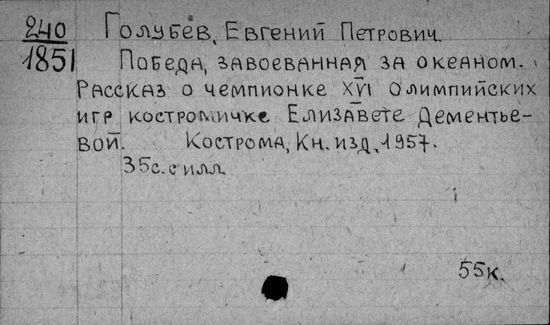 240 Голубев, Евгений Петрович.
1851 Победа, завоеванная за океаном.
Рассказ о чемпионке XVI Олимпийских
игр костромичке Елизавете Дементье-
вой. Кострома, Кн. изд., 1957.
35с. с илл.
55к.